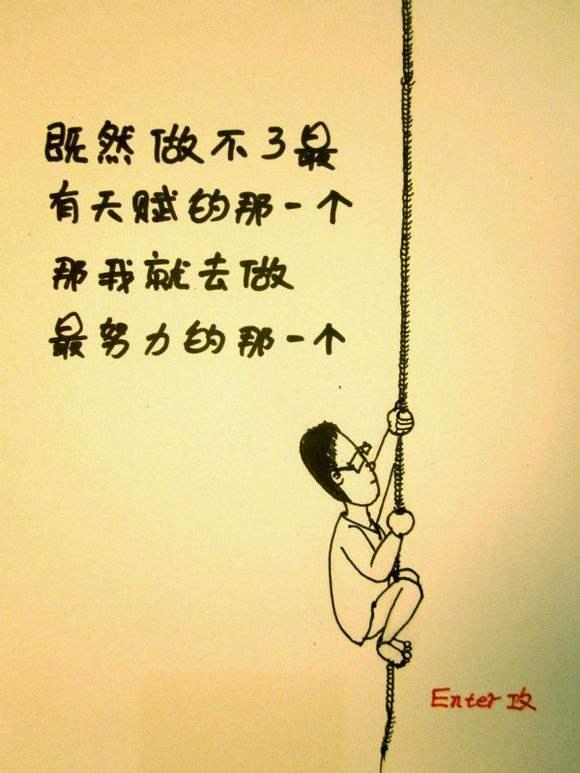 既然做不了最
有天赋的那一个
那我就去做
最努力的那一个
Enter攻